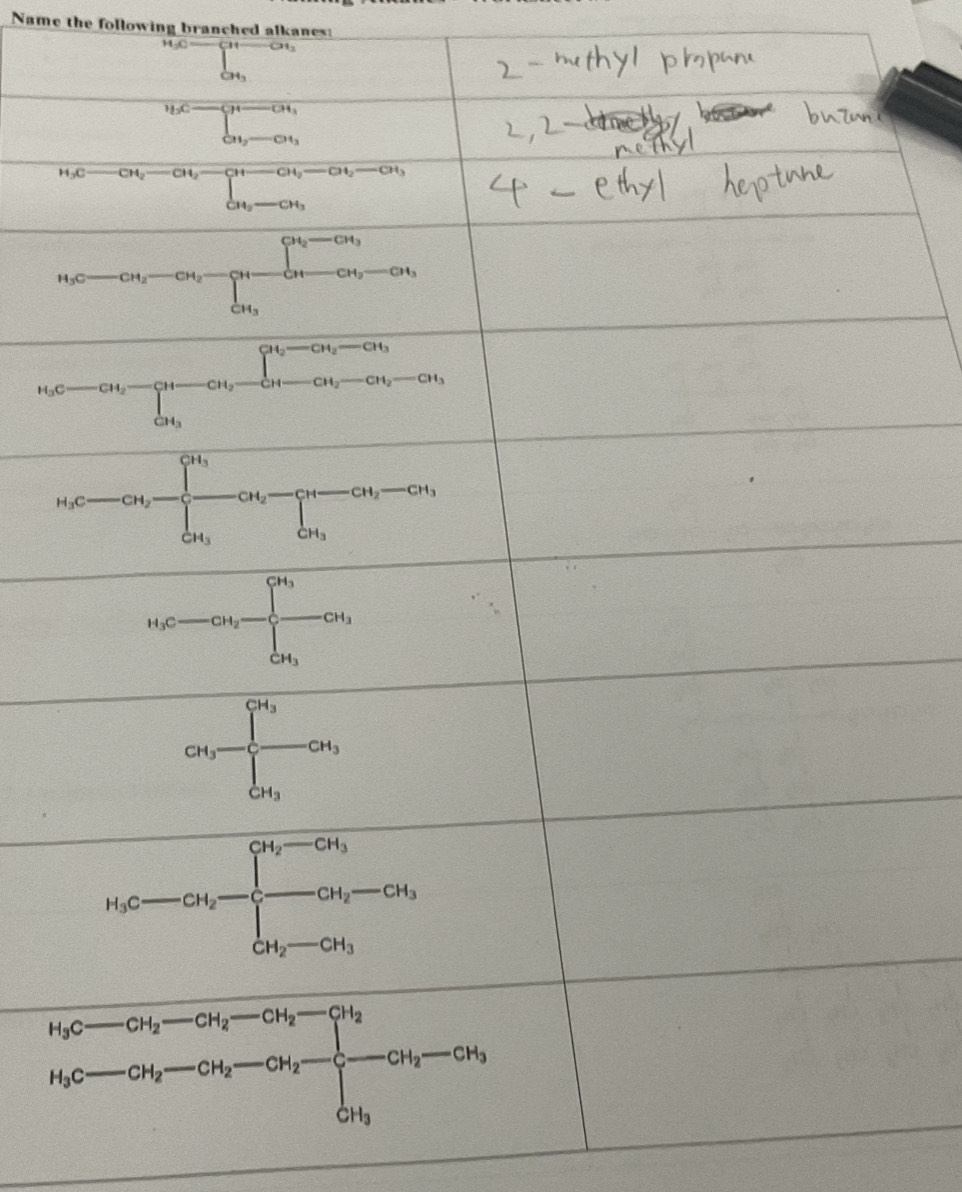 Name the following branched alkanes:
H₃C—CH—CH₃
CH₃
2 - methyl propane
H₃C—CH—CH₃
CH₂—CH₃
2, 2 - butane
methyl
H₃C—CH₂—CH₂—CH—CH₂—CH₂—CH₃
CH₂—CH₃
4 - ethyl heptane
CH₂—CH₃
H₃C—CH₂—CH₂—CH—CH—CH₂—CH₃
CH₃
CH₂—CH₂—CH₃
H₃C—CH₂—CH—CH₂—CH—CH₂—CH₂—CH₃
CH₃
CH₃
H₃C—CH₂—C—CH₂—CH—CH₂—CH₃
CH₃ CH₃
CH₃
H₃C—CH₂—C—CH₃
CH₃
CH₃
CH₃—C—CH₃
CH₃
CH₂—CH₃
H₃C—CH₂—C—CH₂—CH₃
CH₂—CH₃
H₃C—CH₂—CH₂—CH₂—CH₂
H₃C—CH₂—CH₂—CH₂—C—CH₂—CH₃
CH₃